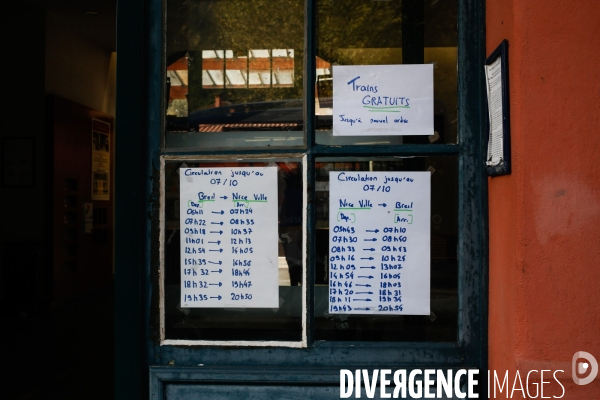 Trains
GRATUITS
Jusqu'à nouvel ordre
Circulation jusqu'au
07/10
Breil → Nice Ville
[Dep.] [Arr.]
→ 07h24
07h22 → 08h33
09h18 → 10h37
11h01 → 12h13
12h54 → 14h05
15h35 → 16h56
17h32 → 18h46
18h32 → 19h47
19h35 → 20h50
Circulation jusqu'au
07/10
Nice Ville → Breil
[Dep.] [Arr.]
→ 07h10
07h30 → 08h50
08h33 → 09h43
09h16 → 10h25
12h09 → 13h02
14h54 → 16h04
16h46 → 18h03
17h20 → 18h31
18h11 → 19h34
19h43 → 20h54
DIVERGENCE IMAGES